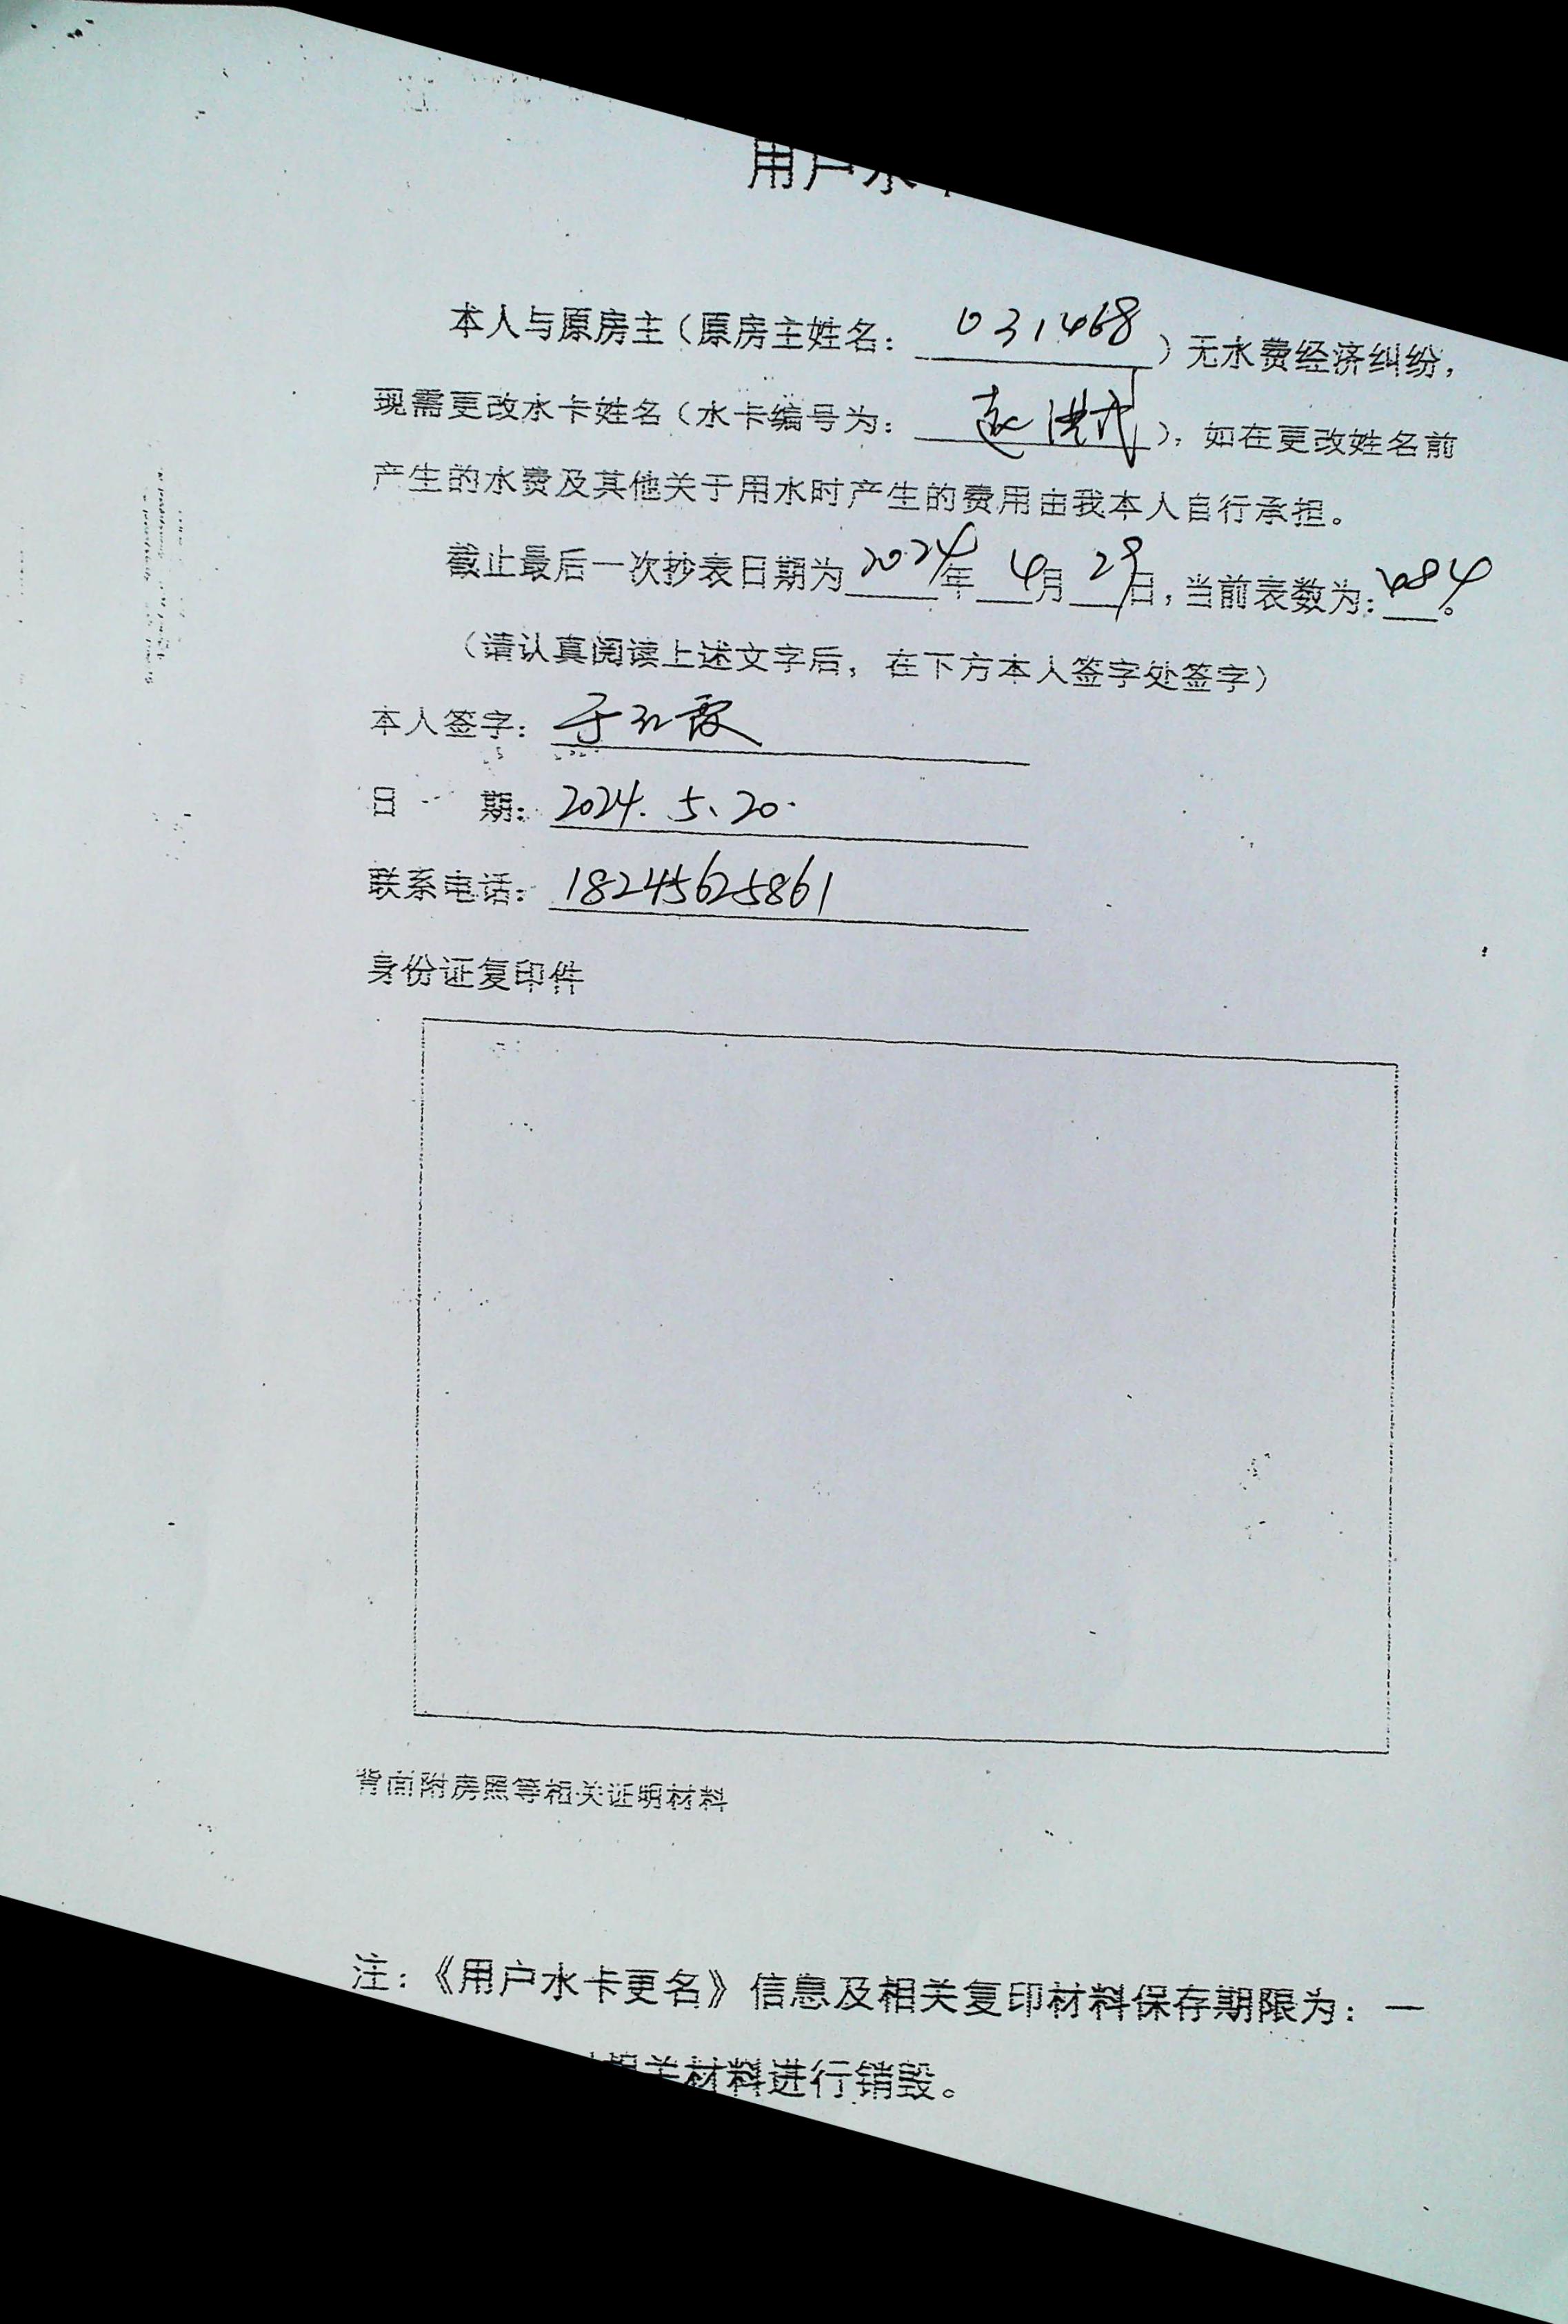 用户水
本人与原房主（原房主姓名：031468）无水费经济纠纷，
现需更改水卡姓名（水卡编号为：赵洪武），如在更改姓名前
产生的水费及其他关于用水时产生的费用由我本人自行承担。
截止最后一次抄表日期为2024年4月29日，当前表数为：484。
（请认真阅读上述文字后，在下方本人签字处签字）
本人签字：于红霞
日 期：2024.5.20.
联系电话：18245625861
身份证复印件
背面附房照等相关证明材料
注：《用户水卡更名》信息及相关复印材料保存期限为：一
相关材料进行销毁。